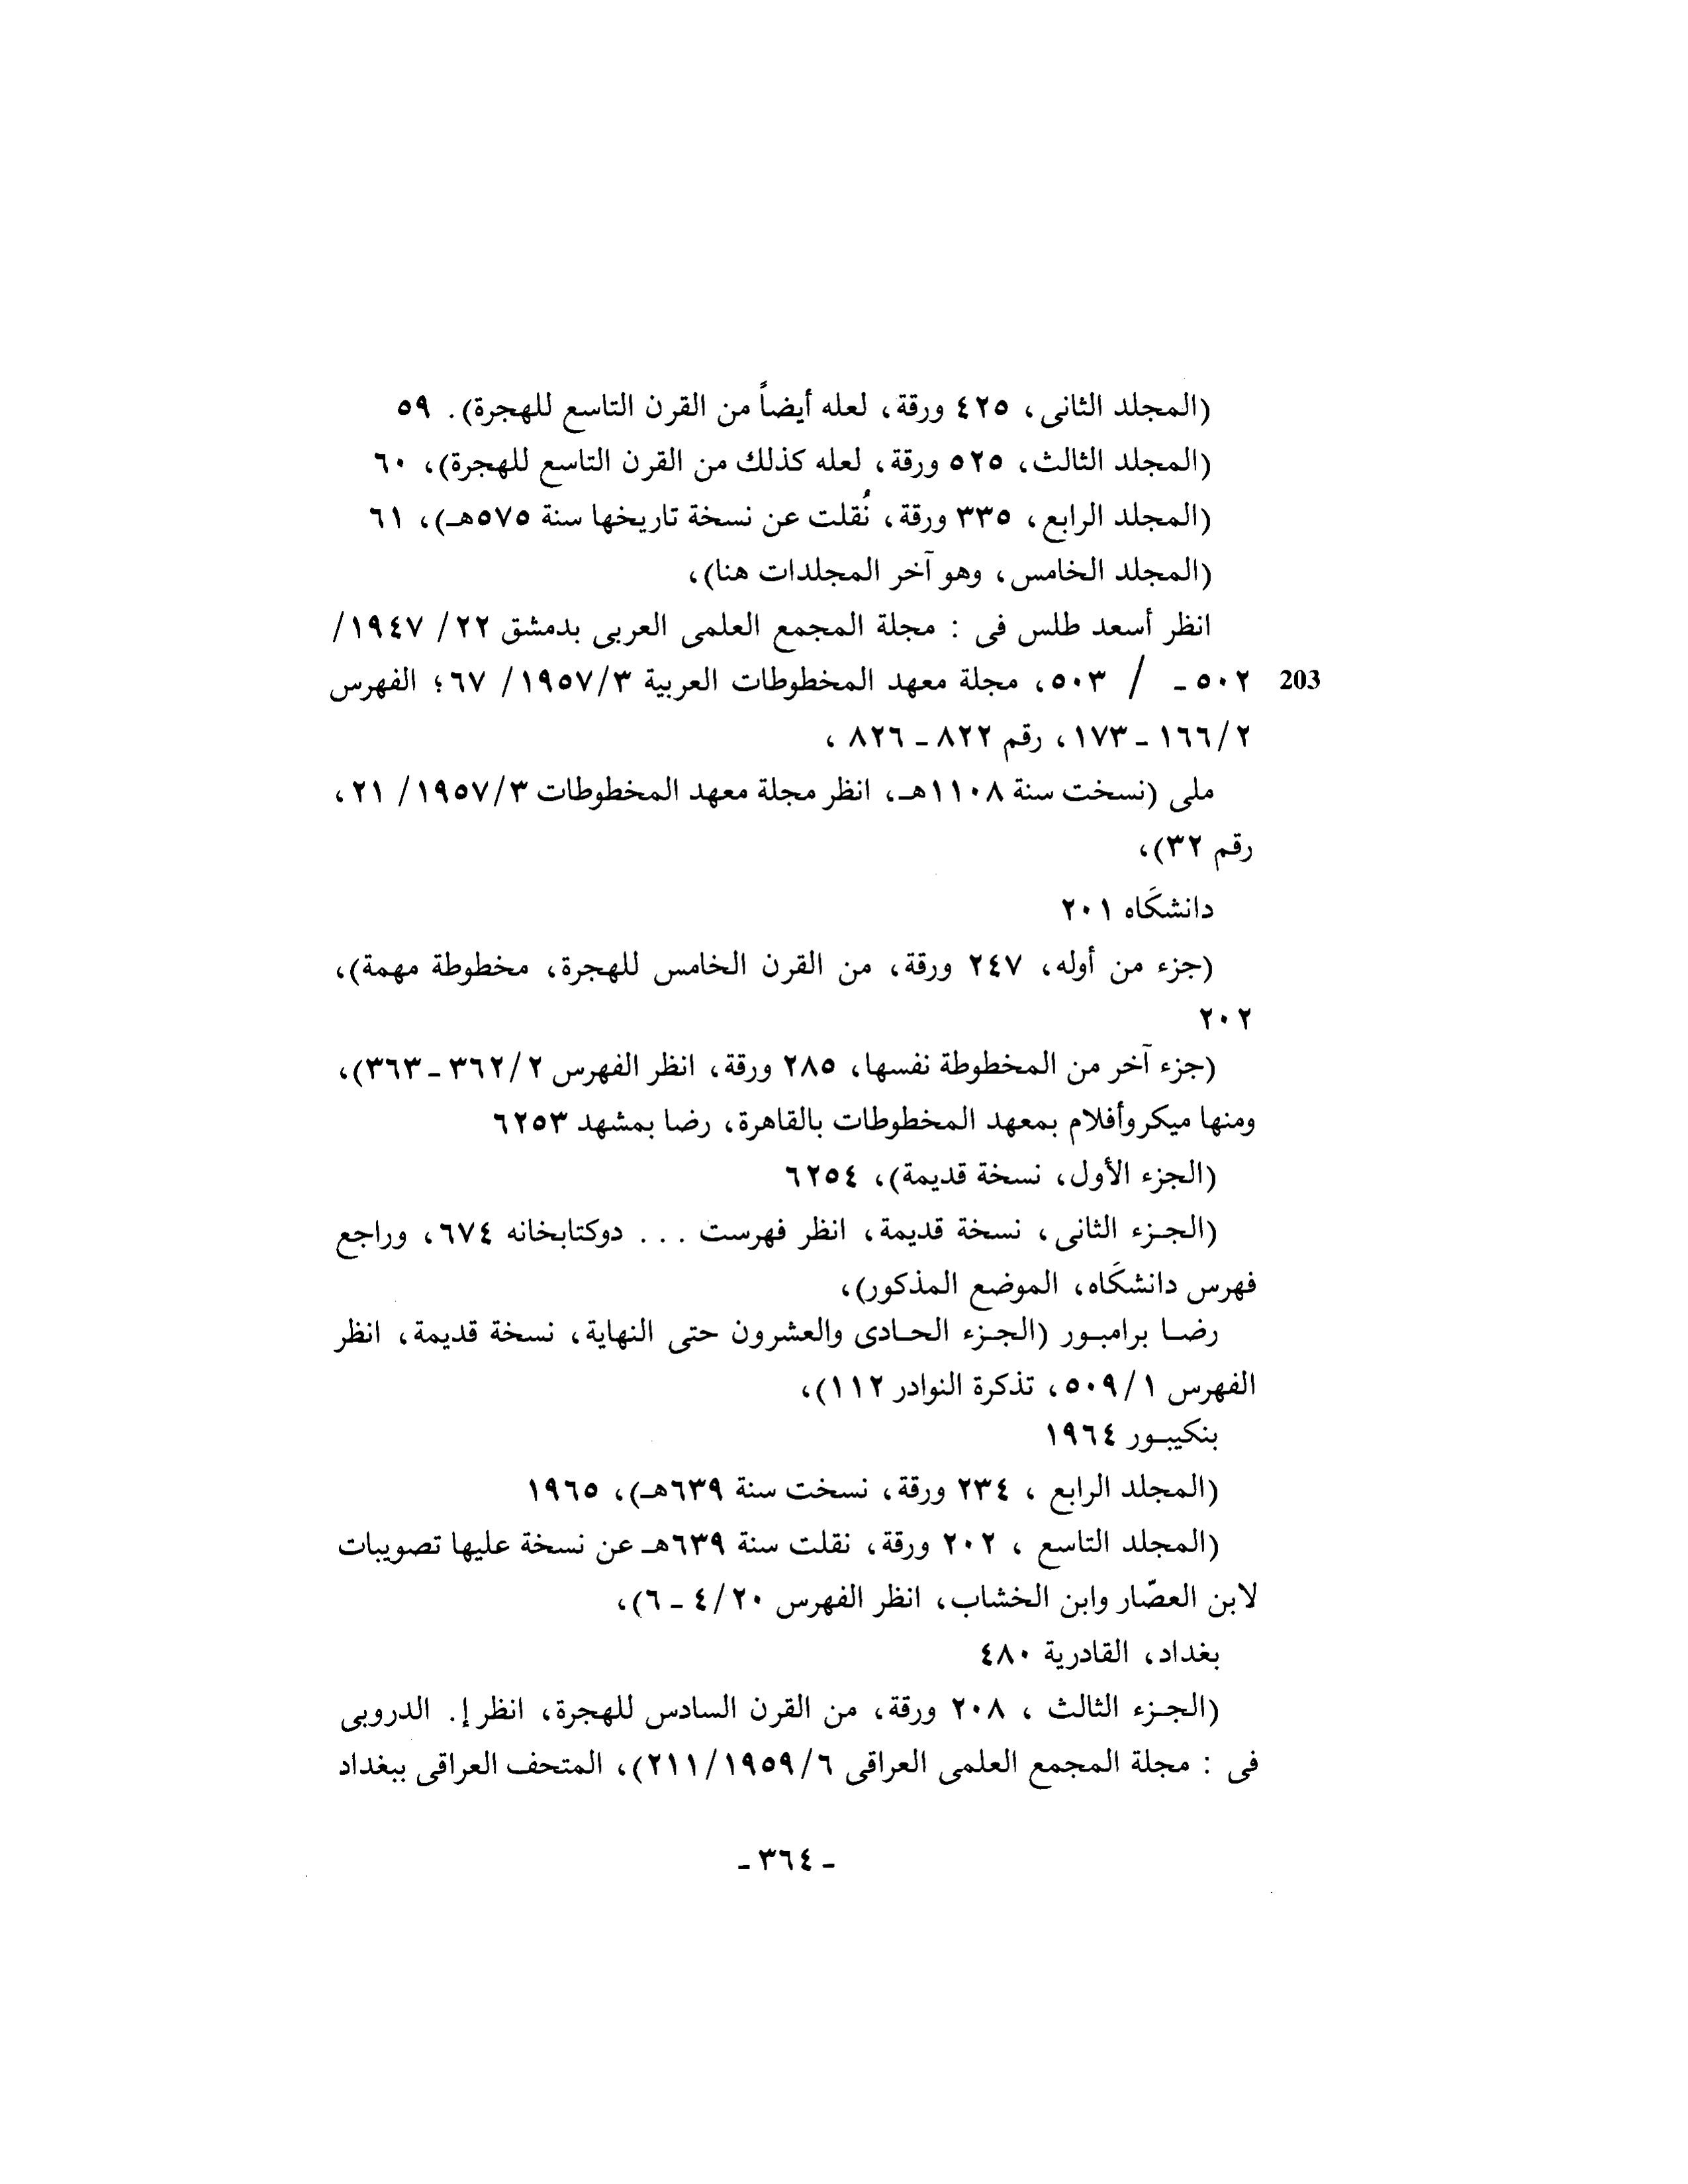 (المجلد الثانى، ٤٢٥ ورقة، لعله أيضاً من القرن التاسع للهجرة). ٥٩
(المجلد الثالث، ٥٢٥ ورقة، لعله كذلك من القرن التاسع للهجرة)، ٦٠
(المجلد الرابع، ٣٣٥ ورقة، نُقلت عن نسخة تاريخها سنة ٥٧٥هـ)، ٦١
(المجلد الخامس، وهو آخر المجلدات هنا)،
انظر أسعد طلس فى : مجلة المجمع العلمى العربى بدمشق ٢٢/ ١٩٤٧/
203 ٥٠٢ - / ٥٠٣، مجلة معهد المخطوطات العربية ١٩٥٧/٣/ ٦٧؛ الفهرس
١٦٦/٢ - ١٧٣، رقم ٨٢٢ - ٨٢٦ ،
ملى (نسخت سنة ١١٠٨هـ، انظر مجلة معهد المخطوطات ١٩٥٧/٣/ ٢١،
رقم ٣٢)،
دانشگاه ٢٠١
(جزء من أوله، ٢٤٧ ورقة، من القرن الخامس للهجرة، مخطوطة مهمة)،
٢٠٢
(جزء آخر من المخطوطة نفسها، ٢٨٥ ورقة، انظر الفهرس ٣٦٢/٢ - ٣٦٣)،
ومنها ميكروأفلام بمعهد المخطوطات بالقاهرة، رضا بمشهد ٦٢٥٣
(الجزء الأول، نسخة قديمة)، ٦٢٥٤
(الجـزء الثانى، نسخة قديمة، انظر فهرست ... دوكتابخانه ٦٧٤، وراجع
فهرس دانشگاه، الموضع المذكور)،
رضـا برامبـور (الجـزء الحـادى والعشرون حتى النهاية، نسخة قديمة، انظر
الفهرس ٥٠٩/١، تذكرة النوادر ١١٢)،
بنكيبـور ١٩٦٤
(المجلد الرابع ، ٢٣٤ ورقة، نسخت سنة ٦٣٩هـ)، ١٩٦٥
(المجلد التاسع ، ٢٠٢ ورقة، نقلت سنة ٦٣٩هـ عن نسخة عليها تصويبات
لابن العصّار وابن الخشاب، انظر الفهرس ٤/٢٠ - ٦)،
بغداد، القادرية ٤٨٠
(الجـزء الثالث ، ٢٠٨ ورقة، من القرن السادس للهجرة، انظر إ. الدروبى
فى : مجلة المجمع العلمى العراقى ٢١١/١٩٥٩/٦)، المتحف العراقى ببغداد
- ٣٦٤ -